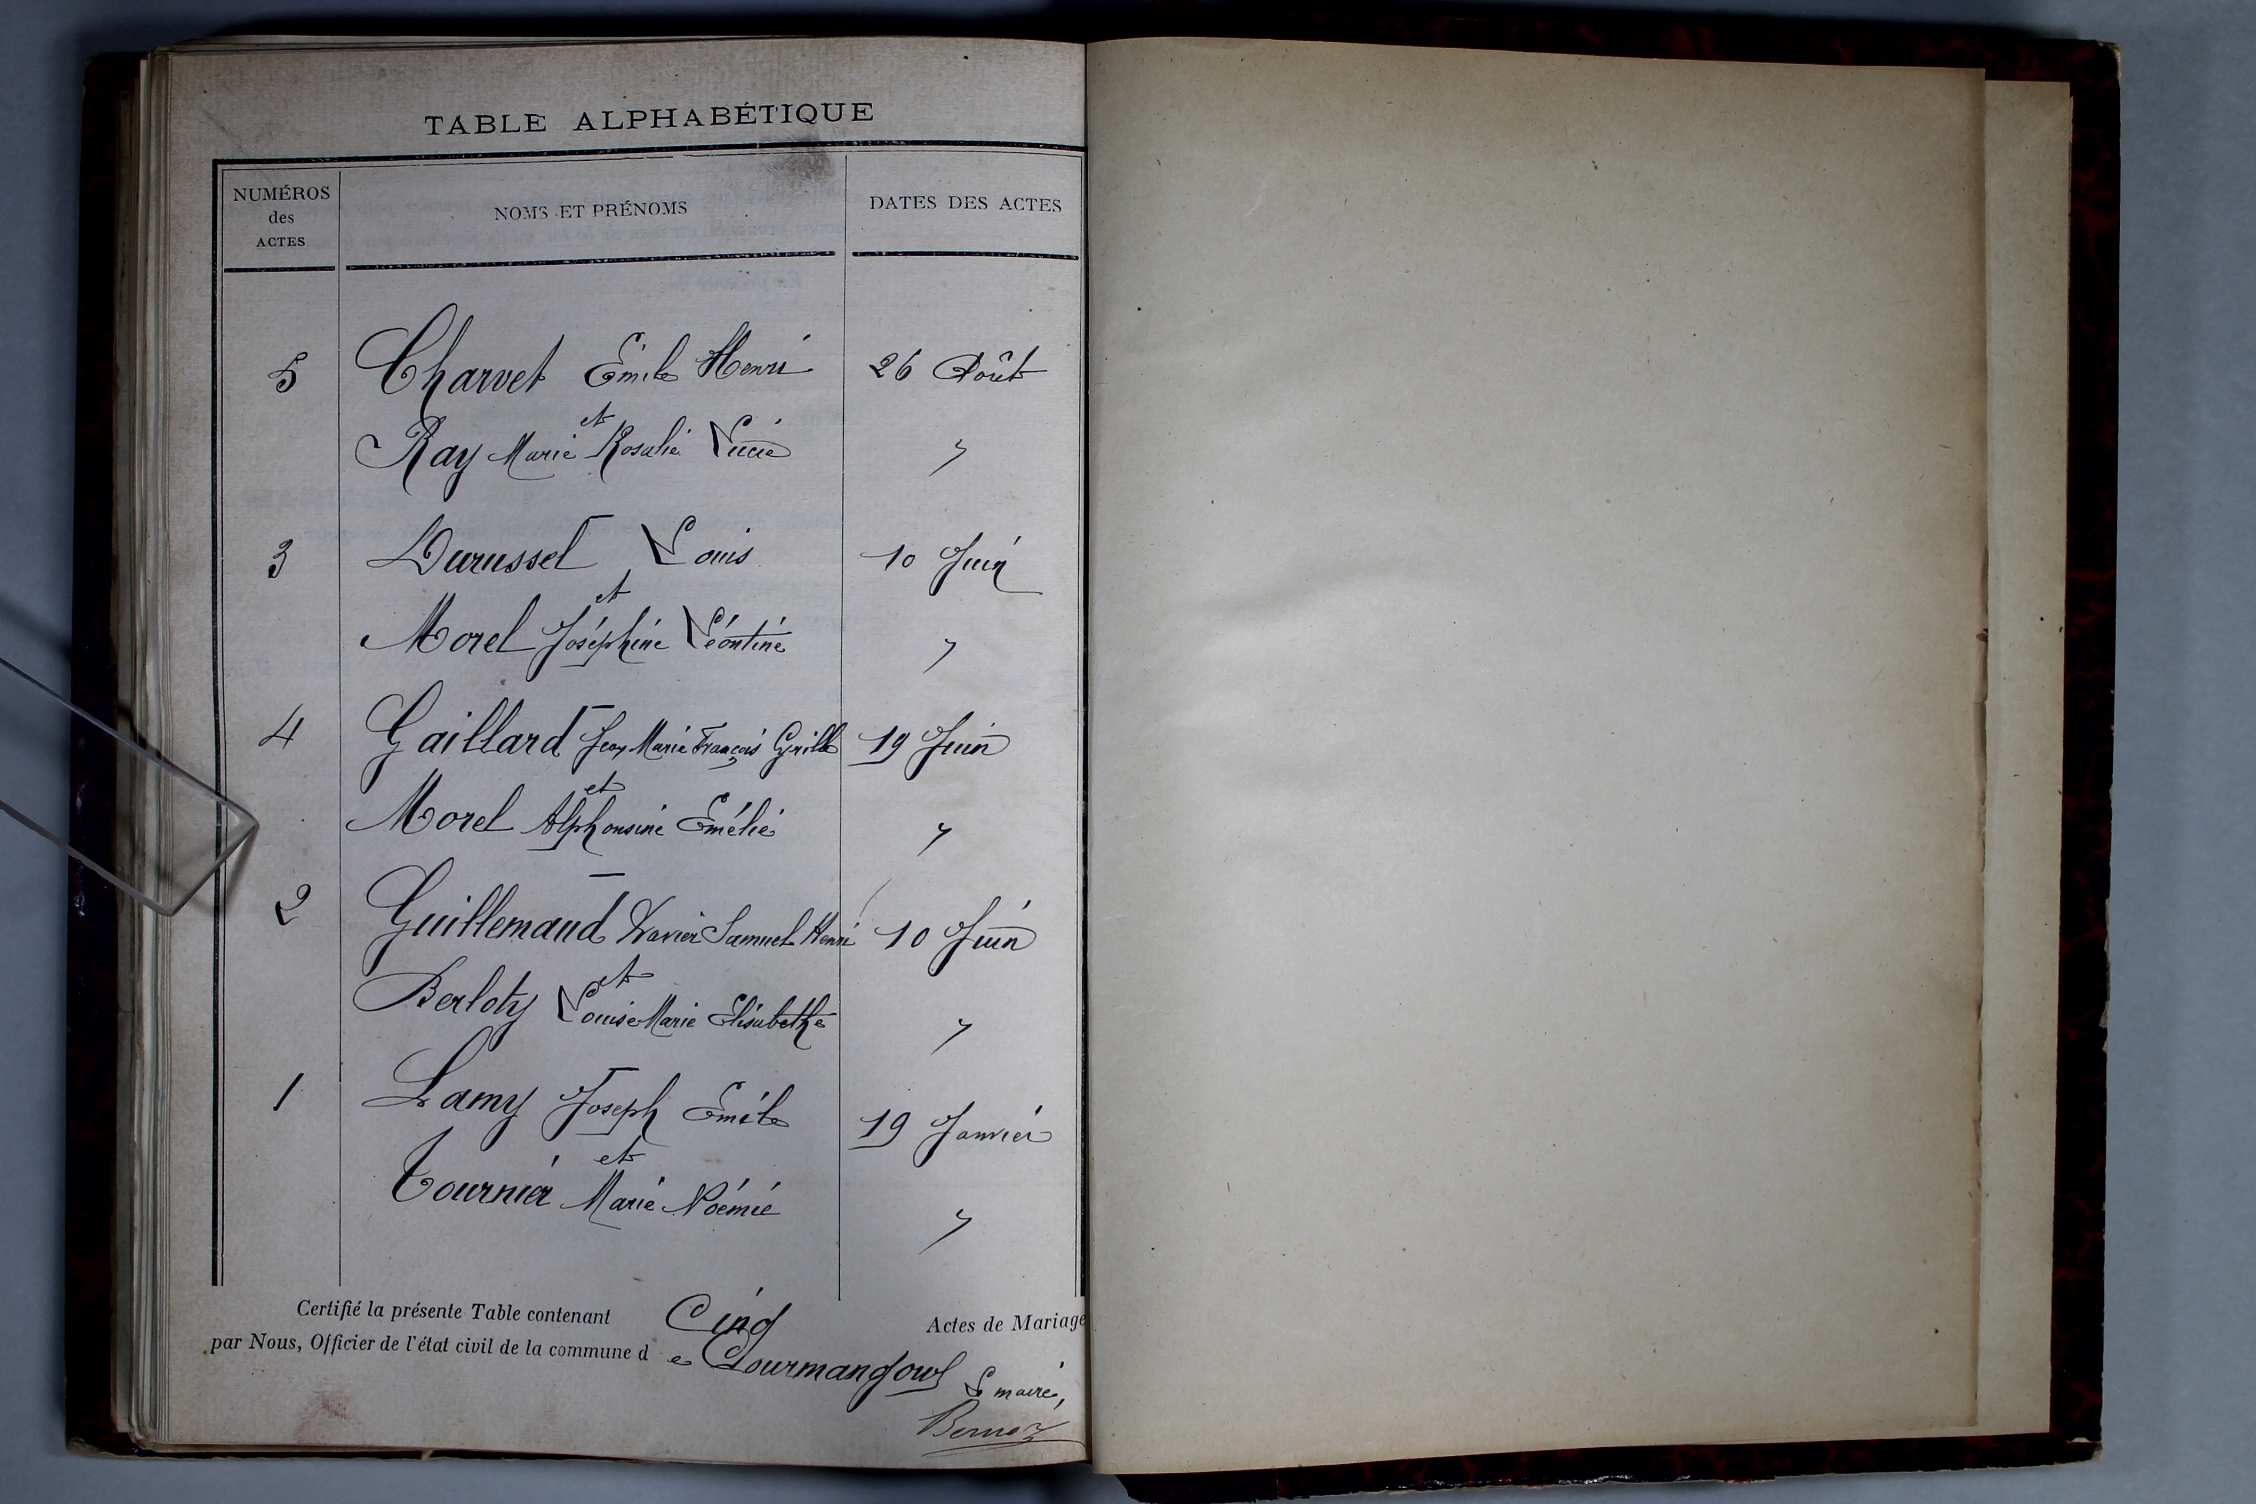 TABLE ALPHABÉTIQUE
NUMÉROS
des
ACTES
NOMS ET PRÉNOMS
DATES DES ACTES
5 Charvet Émile Henri 26 Août
et
Ray Marie Rosalie Lucie "
3 Durussel Louis 10 Juin
et
Morel Joséphine Léontine "
4 Gaillard Jean Marie François Cyrille 19 Juin
et
Morel Alphonsine Emélie "
2 Guillemaud Xavier Samuel Henri 10 Juin
et
Berloty Louise Marie Elisabethe "
1 Lamy Joseph Emile 19 Janvier
et
Tournier Marie Noémie "
Certifié la présente Table contenant Cinq Actes de Mariage
par Nous, Officier de l'état civil de la commune de Courmangoux
Le maire,